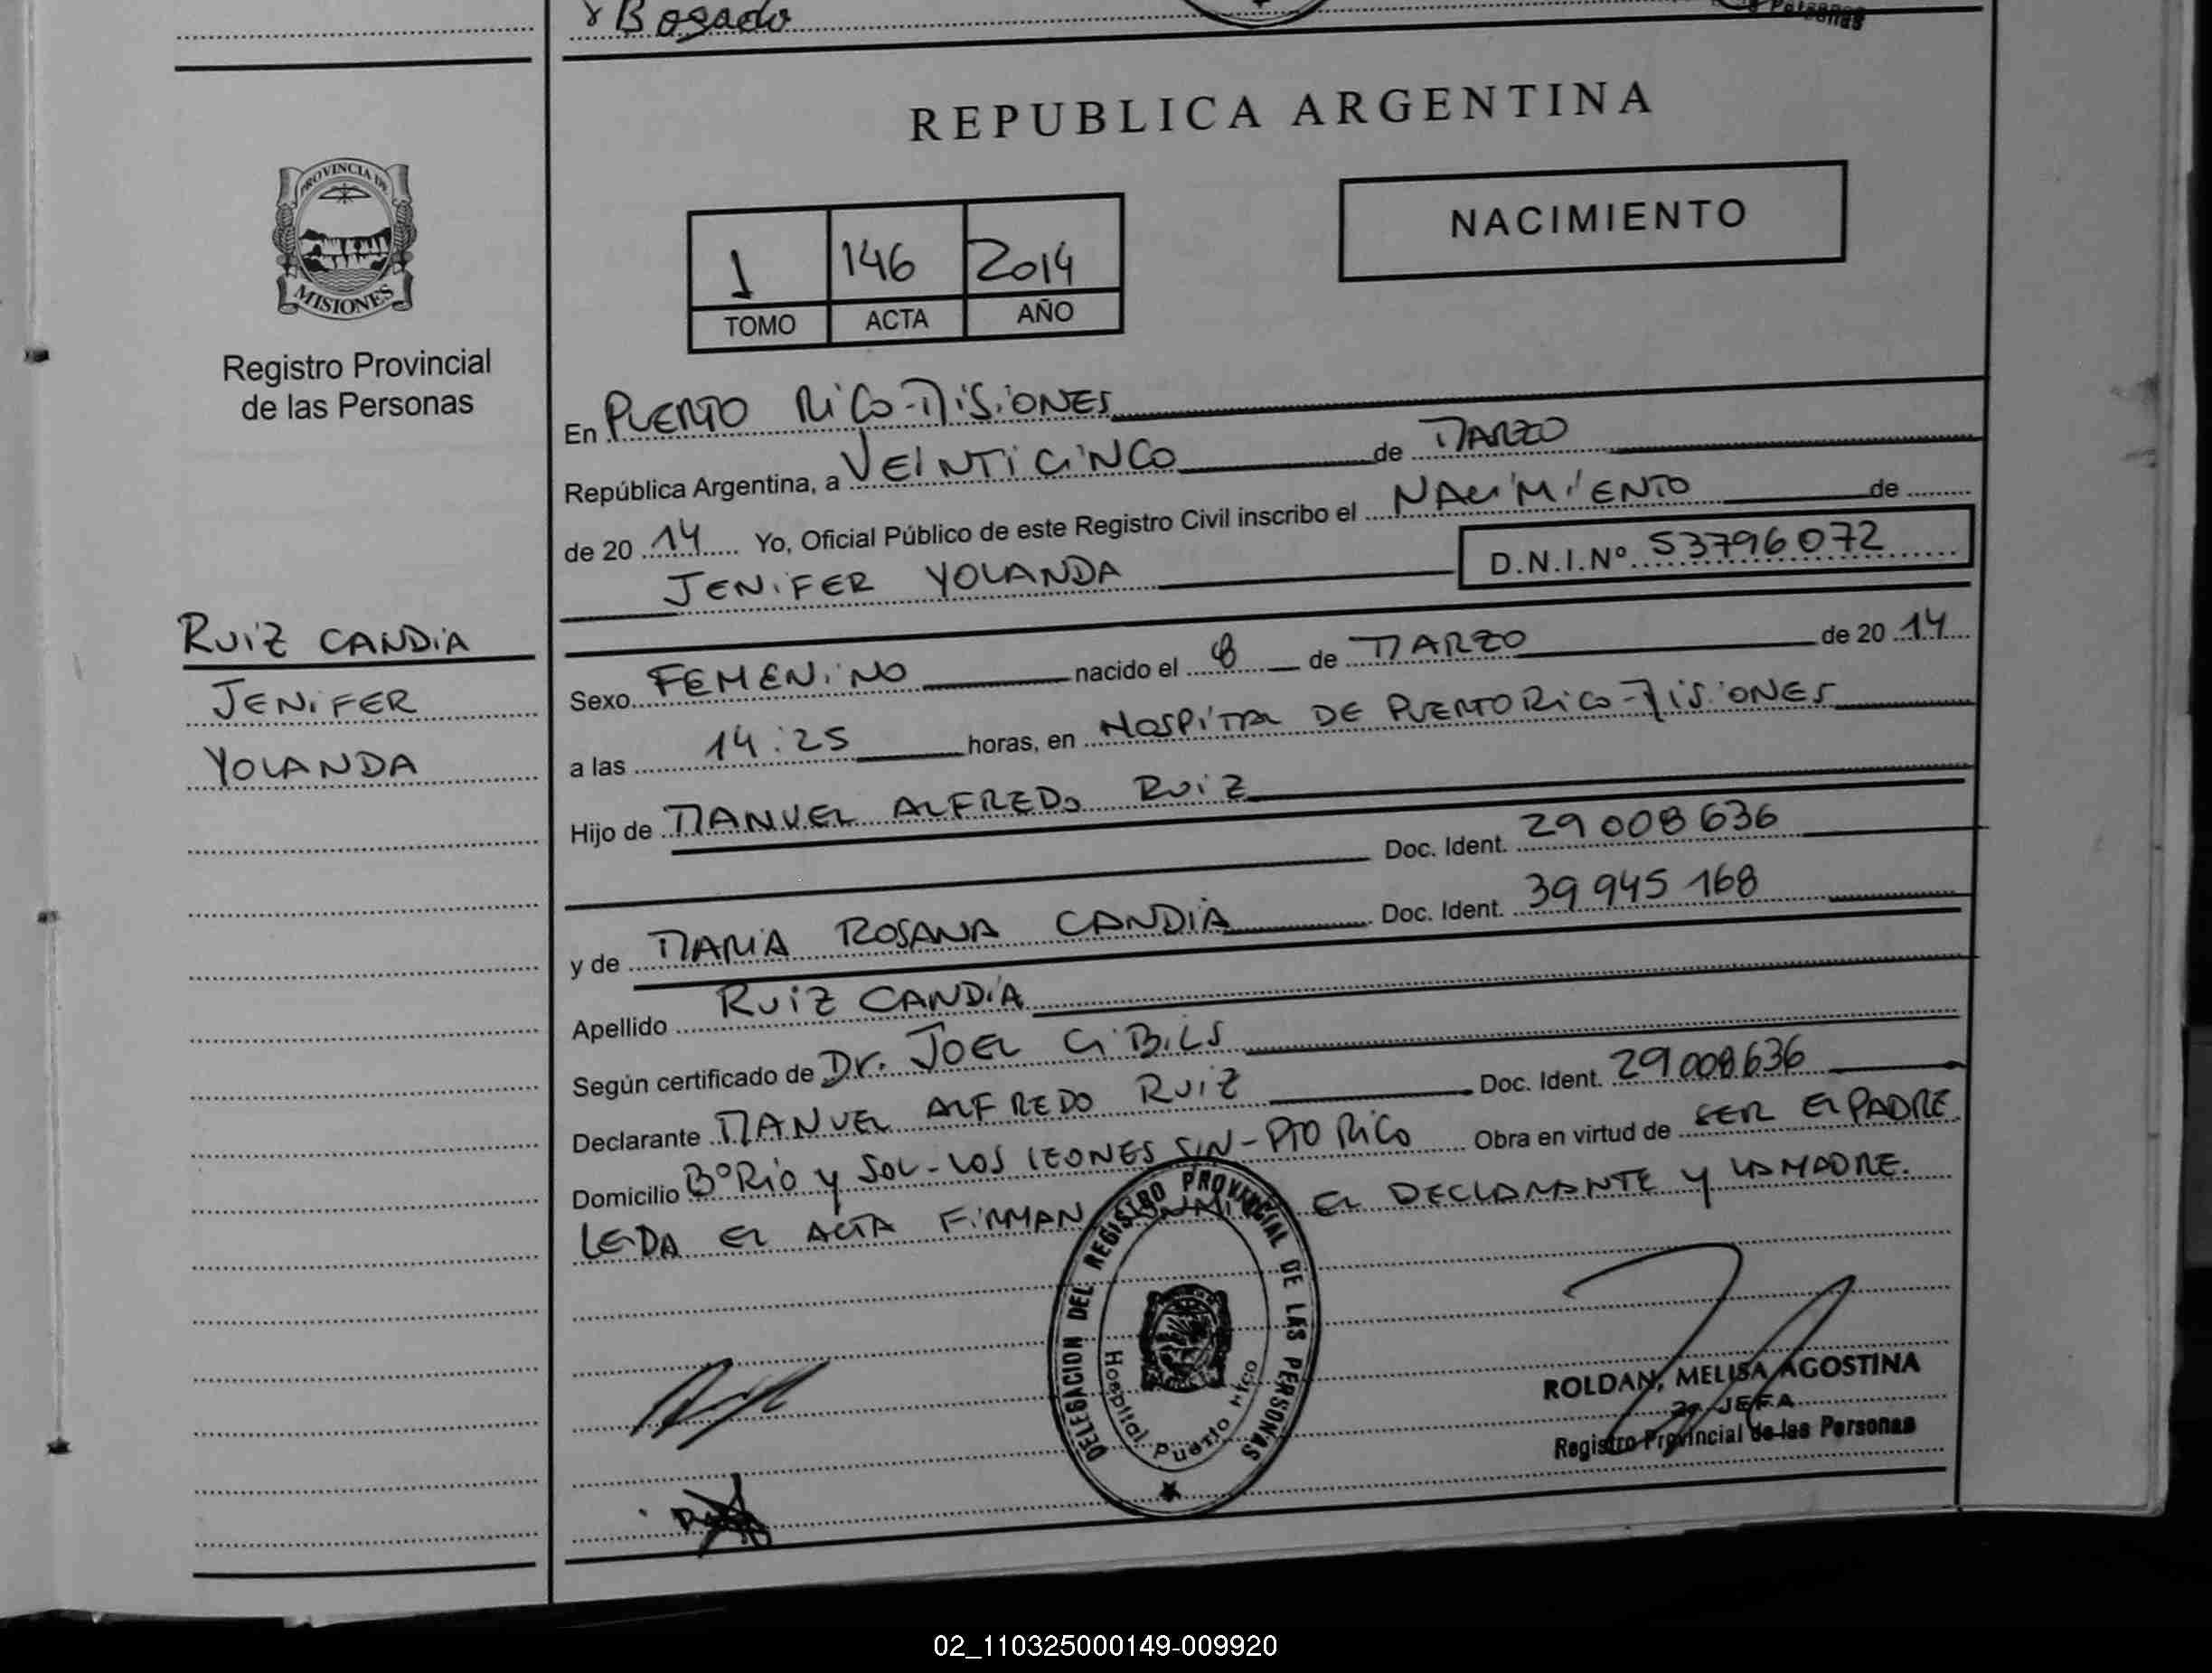 Bogado
Personas
REPUBLICA ARGENTINA
PROVINCIA DE
MISIONES
Registro Provincial
de las Personas
NACIMIENTO
1 146 2014
TOMO ACTA AÑO
En PUERTO RICO-MISIONES
República Argentina, a VEINTICINCO de MARZO
de 20 14 Yo, Oficial Público de este Registro Civil inscribo el NACIMIENTO de
JENIFER YOLANDA D.N.I.Nº 53796072
RUIZ CANDIA
JENIFER
YOLANDA
Sexo FEMENINO nacido el 8 de MARZO de 20 14
a las 14:25 horas, en HOSPITAL DE PUERTO RICO-MISIONES
Hijo de MANUEL ALFREDO RUIZ
Doc. Ident. 29 008 636
y de MARIA ROSANA CANDIA Doc. Ident. 39 945 168
Apellido RUIZ CANDIA
Según certificado de Dr. JOEL GIBILS
Declarante MANUEL ALFREDO RUIZ Doc. Ident. 29 008 636
Domicilio Bº RIO Y SOL-LOS LEONES S/N-PTO RICO Obra en virtud de SER EL PADRE
LEIDA EL ACTA FIRMAN EL DECLARANTE Y LA MADRE.
DELEGACION DEL REGISTRO PROVINCIAL DE LAS PERSONAS
Hospital Puerto Rico
ROLDAN, MELISA AGOSTINA
JEFA
Registro Provincial de las Personas
02_110325000149-009920